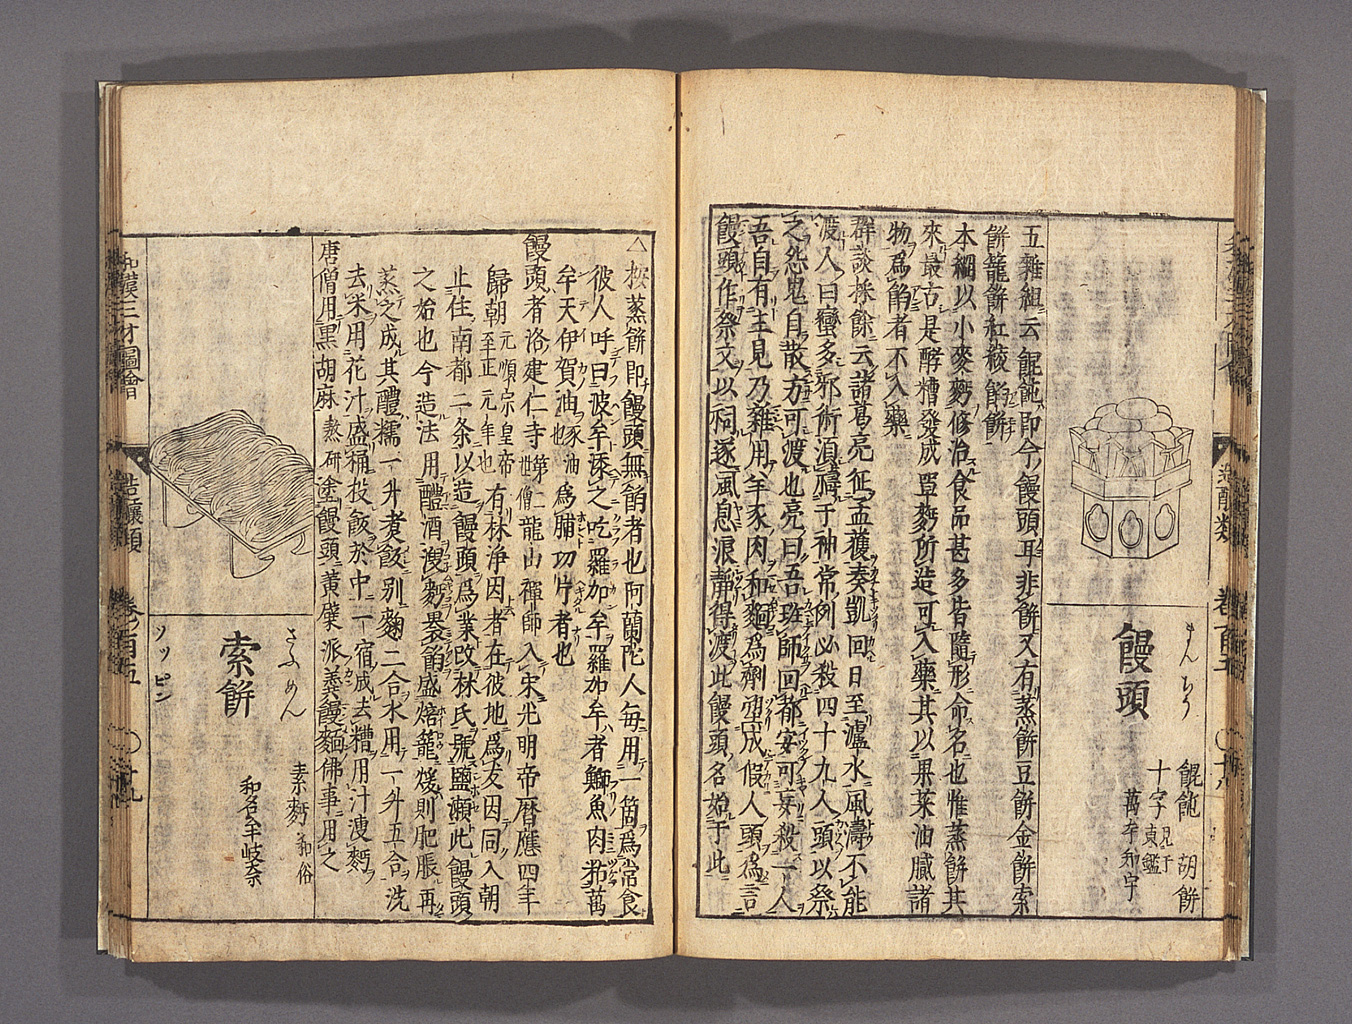 饅頭
まんぢう
餛飩 胡餅
十字 見于東鑑
萬年 和字
五雜組云餛飩即今饅頭耳非餅又有蒸餅豆餅金餅索
餅籠餅紅綾餡餅
本綱以小麥麪修治食品甚多皆隨形命名也惟蒸餅其
來最古是酵糟發成單麪所造可入藥其以果菜油膩諸
物爲餡者不入藥
群談採餘云諸葛亮征孟獲奏凱回日至瀘水風濤不能
渡人曰蠻多邪術須禱于神常例必殺四十九人頭以祭
之怨鬼自散方可渡也亮曰吾班師回都安可妄殺一人
吾自有主見乃雜用羊豕肉和麵爲劑塑成假人頭爲言
饅頭作祭文以祠遂風息浪靜得渡此饅頭名始于此
△按蒸餅即饅頭無餡者也阿蘭陀人每用一箇爲常食
彼人呼曰波牟
牟天伊賀油 豕油也 爲脯切片者也
饅頭者洛建仁寺 第二世僧 龍山禪師入宋光明帝曆應四年
歸朝 元順宗皇帝至正元年也 有林淨因者在彼地爲友因同入朝
止住南都二条以造饅頭爲業改林氏號鹽瀬此饅頭
之始也今造法用醴酒溲麪裹餡盛焙籠煖則肥脹再
蒸之成其醴糯一升煮飯別麴二合水用一升五合洗
去米用花汁盛桶投飯於中一宿成去糟用汁溲麪
唐僧用黒胡麻 熬研 塗饅頭黄檗派羹饅麵佛事用之
索餅
さふめん
ソッピン
素麪 和俗
和名牟岐奈
和漢三才圖會
造釀類
卷ノ百五
〇十九